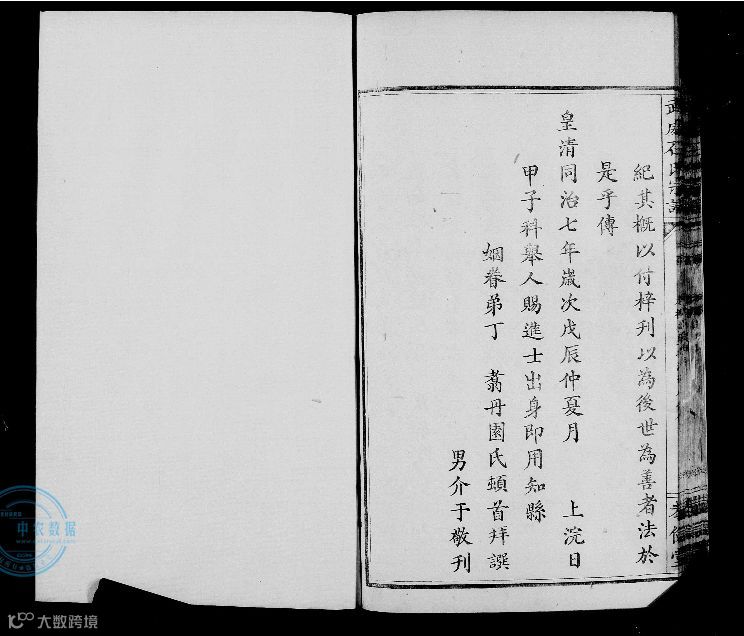 紀其概以付梓刊以為後世為善者法於
是乎傳
皇清同治七年歲次戊辰仲夏月 上浣日
甲子科舉人賜進士出身即用知縣
姻眷弟丁 翥丹園氏頓首拜譔
男介于敬刊
中农数据
大数跨境